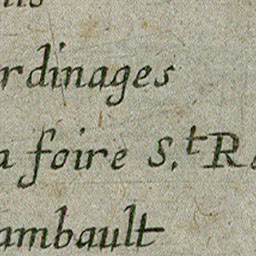 rdinages
a foire S.t R
ambault